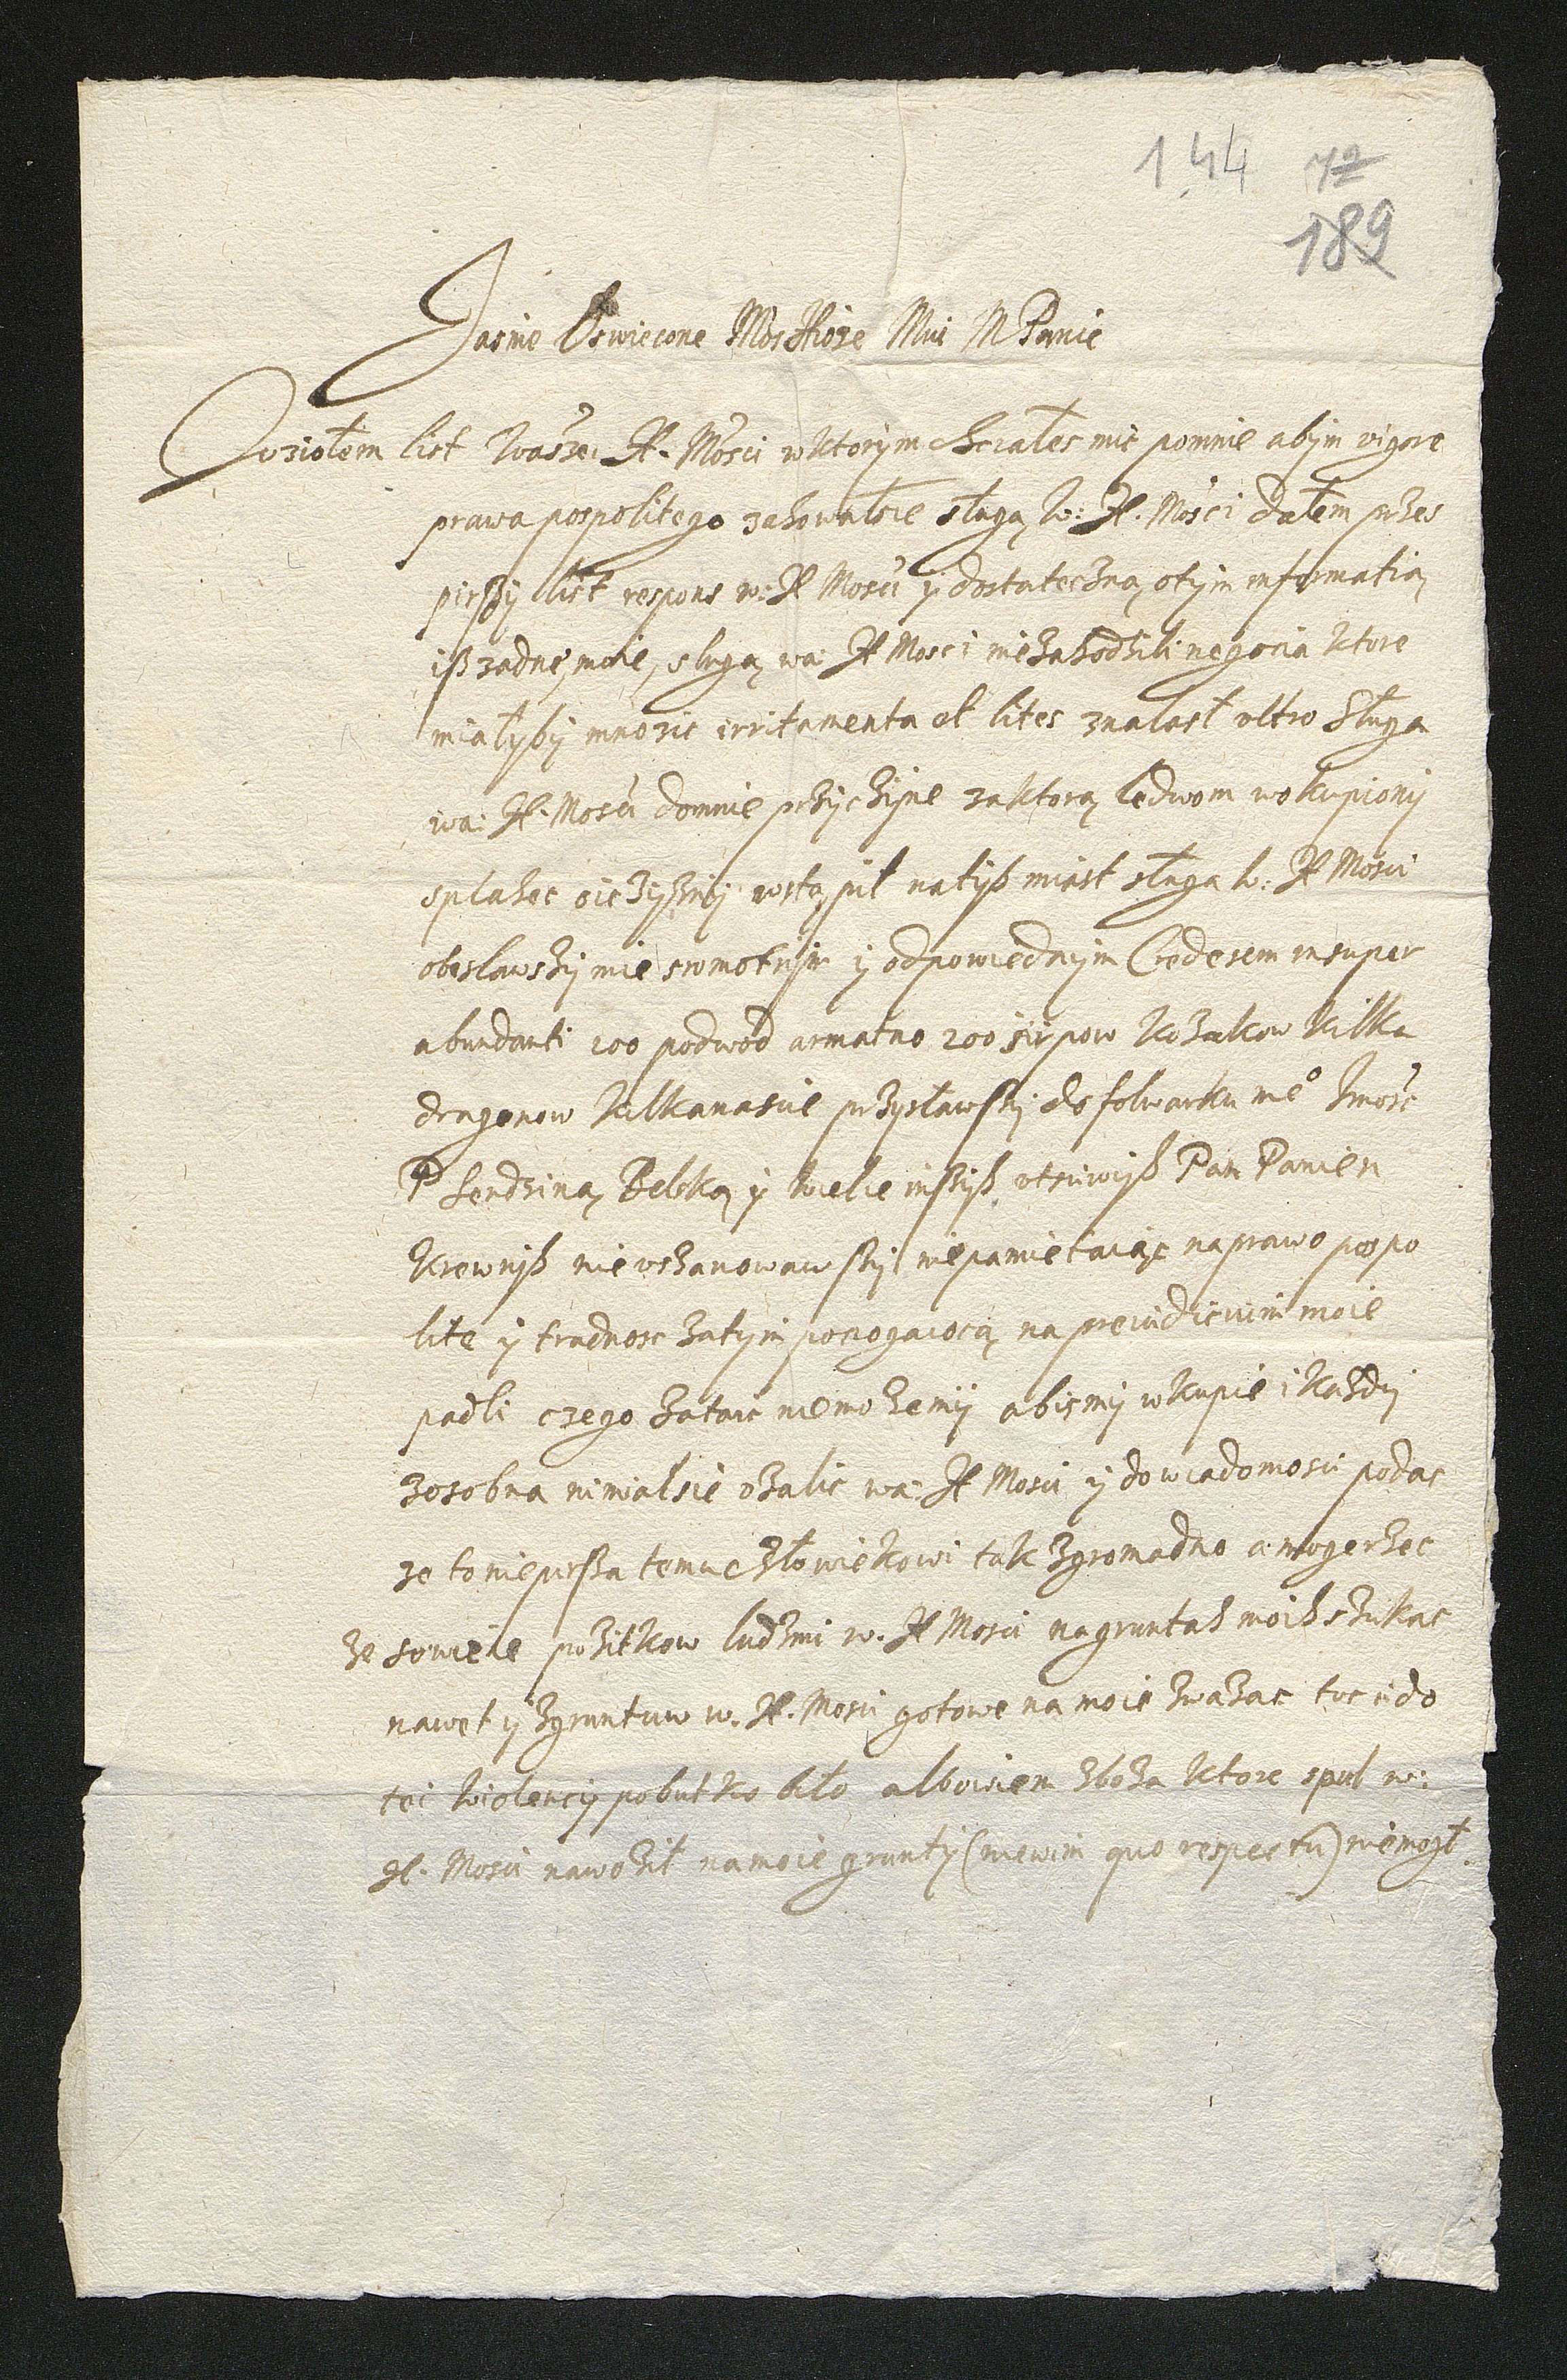 144 72
189
Jasnie Oswiecone Mosc Xioze Mnie M Panie
Wziołem list Waszei X. Mosci wktorym chciałes mie pomnie abym vigore
prawa pospolitego zahowałsie sługą W: X. Mosci dałem przes
pirszy list respons w: X Mosci y dostateczną otym informatią
isz zadne mnie, sługą wa: X Mosci niezahodzili negocia ktore
miałyby mnozic irritamenta et lites znalasł vltro Sługa
wa: X. Mosci domnie przyczyne zaktorą ledwom wokupiony
splahec oiczyzny wstąpił natysz miast sługa W: X Mosci
obesławszy mie sromotnym y odpowiednym Cedesem insuper
abundanti 100 podwod armatno 200 sirpow Kozakow kilka
dragonow kilkanascie przysławszy do folwarku me° Jmość
P Sendziną Belską y wiele inszysz vtsciwysz Pan Panien
krewnysz nie vszanowawszy niepamietaiąc naprawo pospo
lite y trudnosc zatym na preiudicium moie
padli czego zataic niemozemy abismy wkupie i kazdy
zosobna nimialsie ozalic wa: X Mosci y dowiadomosci podac
ze to niepirsza temu człowiekowi tak zgromadno a mogerzec
ze sowicie pozitkow ludzmi w. X Mosci nagruntah moih szukac
nawet y zgruntuw w. X. Mosci gotowe na moie zwazac toc ido
tei wiolencij pobutko biło albowiem zboza ktore spul w:
X. Mosci nawoził namoie grunty (niewim quo respectu) niemogł